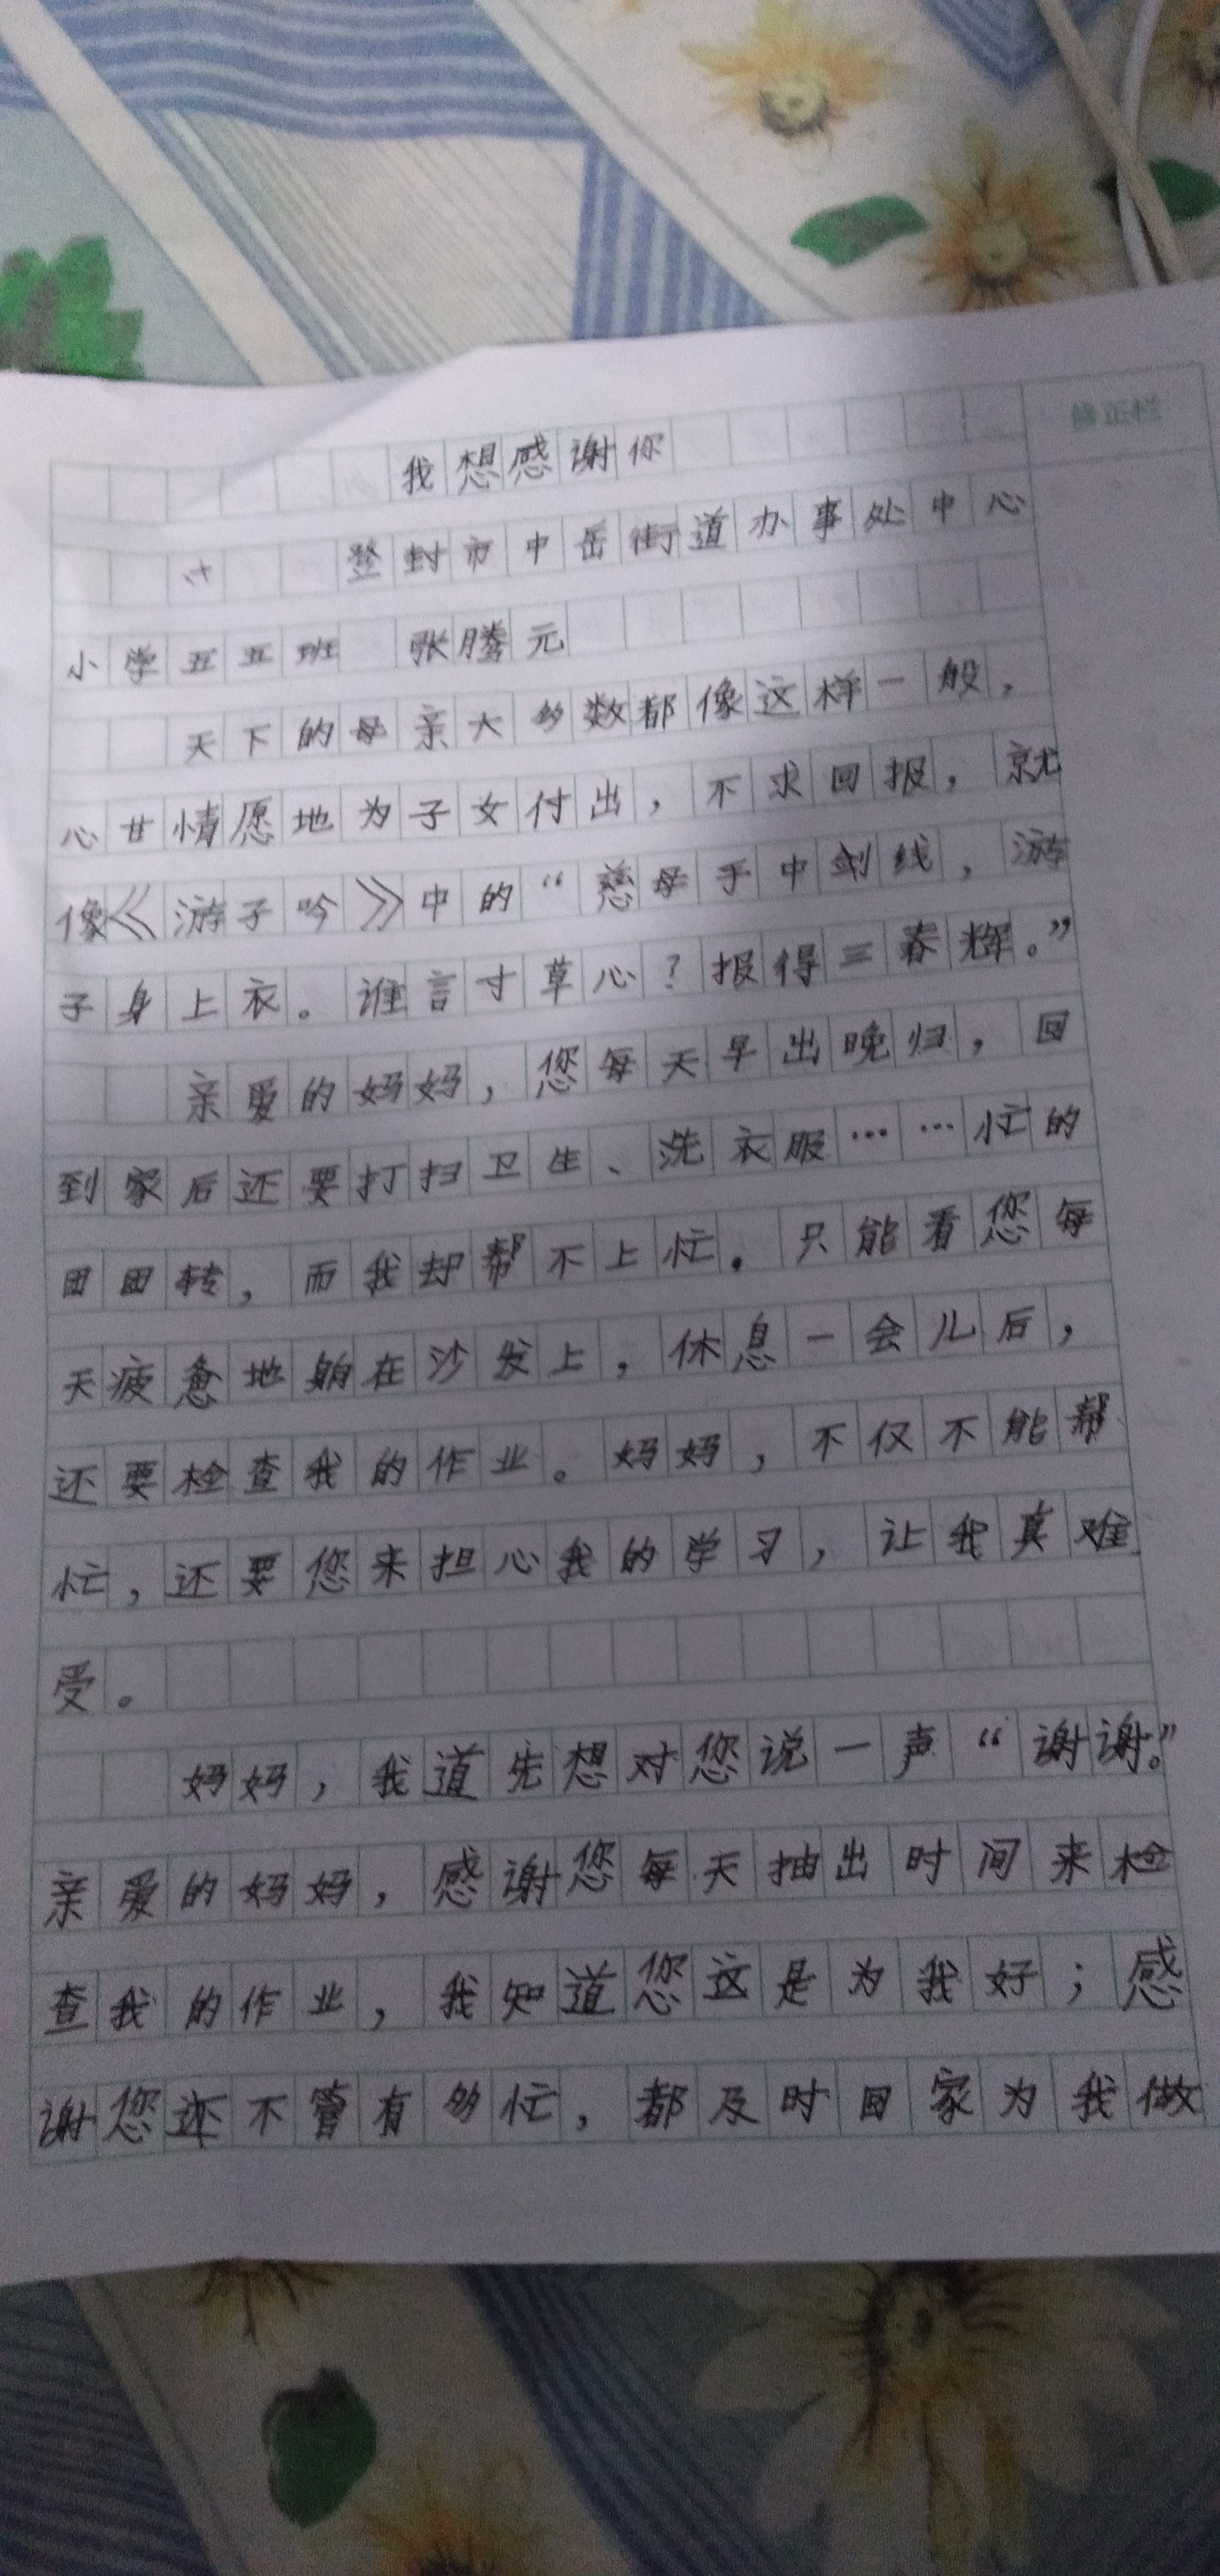 修正栏
我想感谢你
登封市中岳街道办事处中心
小学五五班 张腾元
天下的母亲大多数都像这样一般，
心甘情愿地为子女付出，不求回报，就
像《游子吟》中的“慈母手中剑线，游
子身上衣。谁言寸草心？报得三春辉。”
亲爱的妈妈，您每天早出晚归，回
到家后还要打扫卫生、洗衣服……忙的
团团转，而我却帮不上忙。只能看您每
天疲惫地躺在沙发上，休息一会儿后，
还要检查我的作业。妈妈，不仅不能帮
忙，还要您来担心我的学习，让我真难
受。
妈妈，我道先想对您说一声“谢谢。”
亲爱的妈妈，感谢您每天抽出时间来检
查我的作业，我知道您这是为我好；感
谢您还不管有多忙，都及时回家为我做